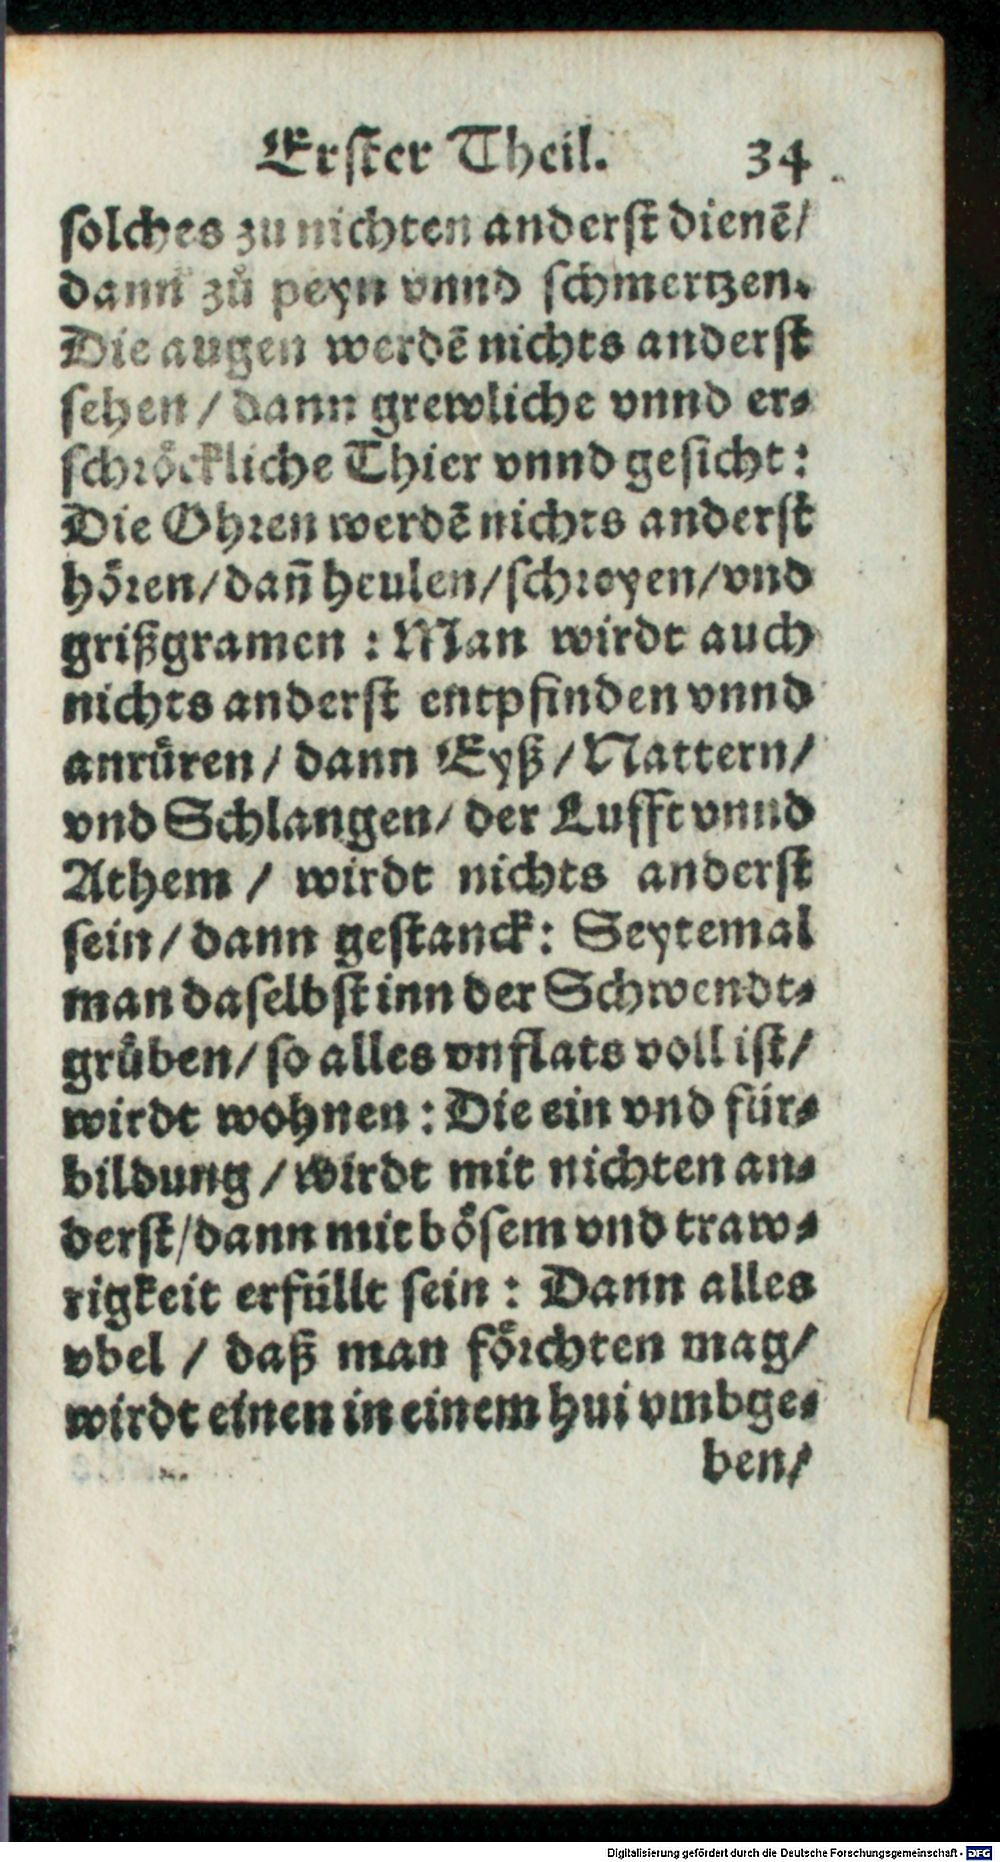 Erster Theil. 34
solches zu nichten anderst dienẽ/
dann zů peyn vnnd schmertzen.
Die augen werdẽ nichts anderst
sehen / dann grewliche vnnd er-
schröckliche Thier vnnd gesicht:
Die Ohren werdẽ nichts anderst
hören/dañ heulen/schreyen/vnd
grißgramen : Man wirdt auch
nichts anderst entpfinden vnnd
anrüren / dann Eyß / Nattern/
vnd Schlangen/ der Lufft vnnd
Athem / wirdt nichts anderst
sein/ dann gestanck: Seytemal
man daselbst inn der Schwendt-
grůben/ so alles vnflats voll ist/
wirdt wohnen : Die ein vnd für-
bildung / wirdt mit nichten an-
derst/dann mit bösem vnd traw-
rigkeit erfüllt sein : Dann alles
vbel / daß man förchten mag/
wirdt einen in einem hui vmbge-
ben/
Digitalisierung gefördert durch die Deutsche Forschungsgemeinschaft - DFG